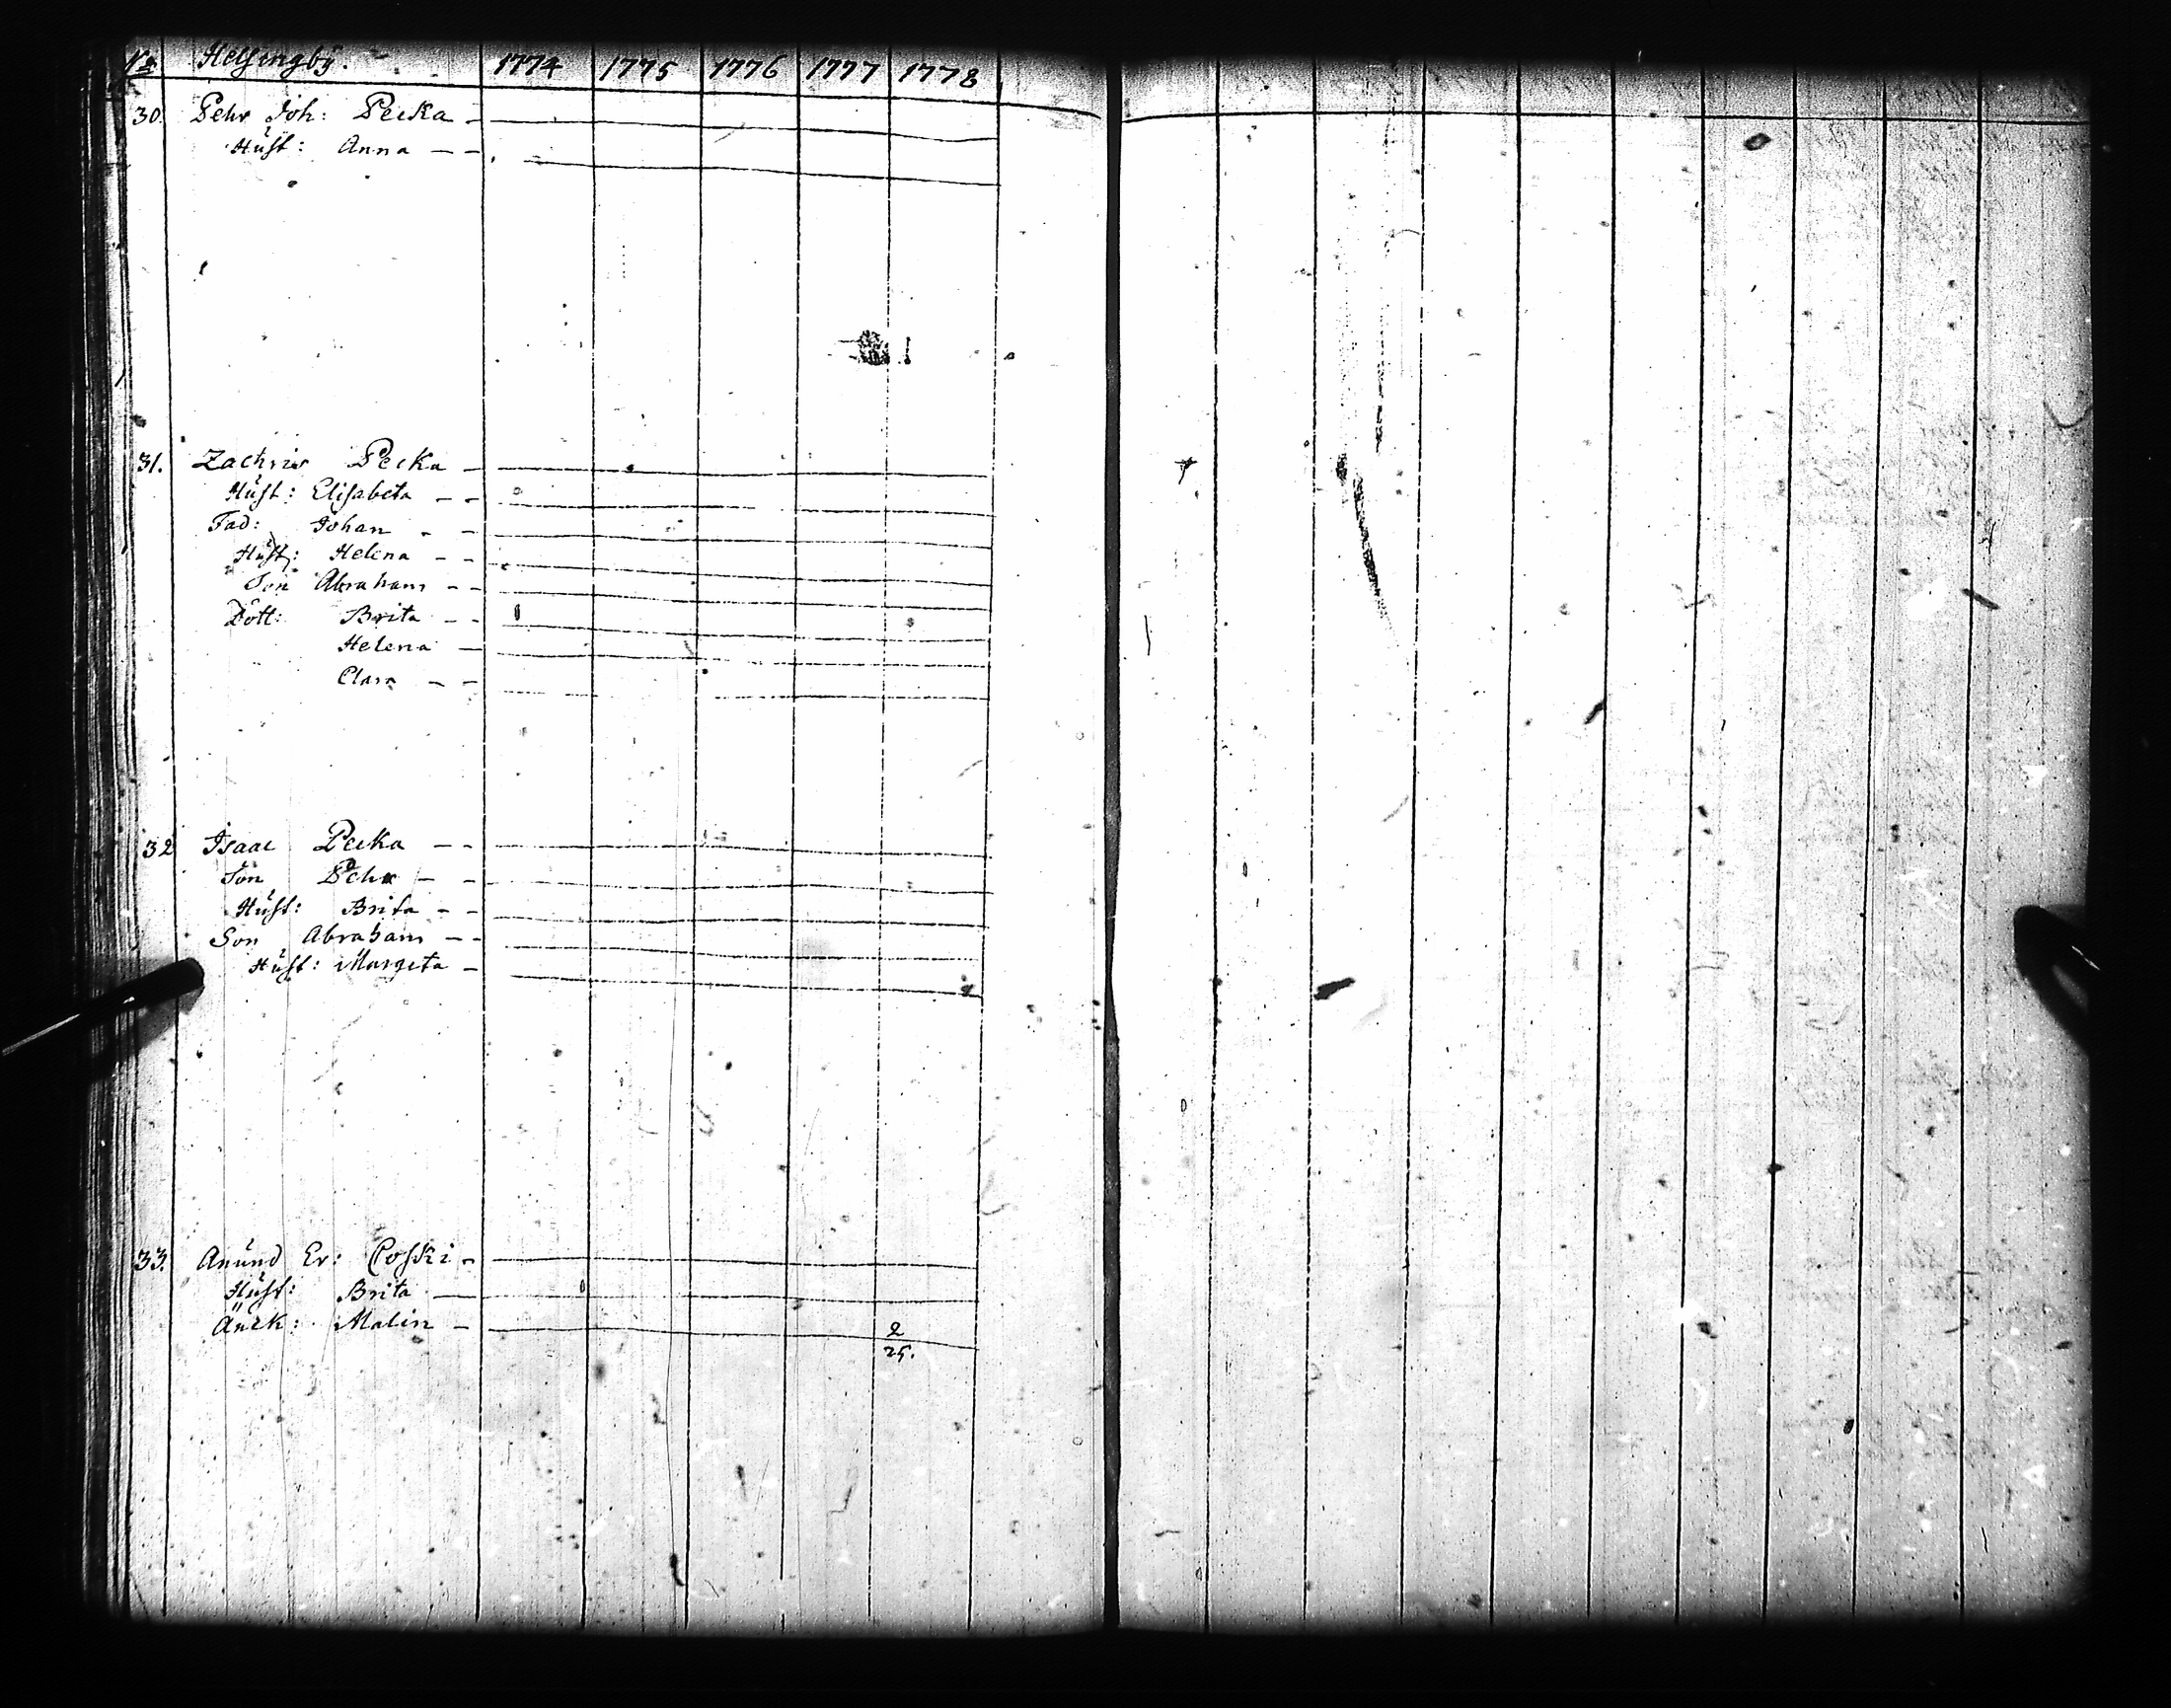 No Helsingby. 1774 1775 1776 1777 1778
30. Pehr Joh: Pecka
Hust: Anna
31. Zachris Pecka
Hust: Elisabeta
Fad: Johan
Hust: Helena
Son Abraham
Dott: Brita
Helena
Clara
32 Isaac Pecka
Son Pehr
Hust: Brita
Son Abraham
Hust: Margeta
33. Anund Er: Coski
Hust: Brita
Änck: Malin 2
25.